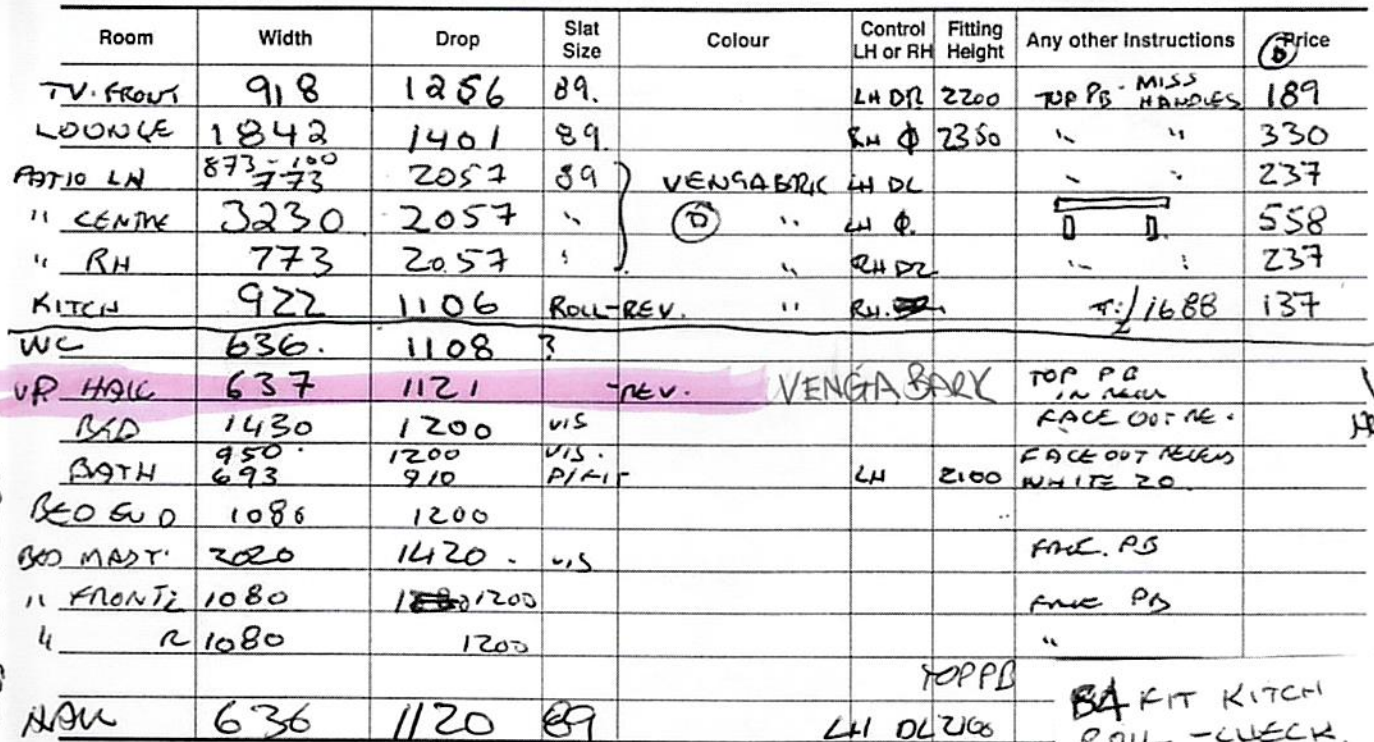 Room Width Drop Slat Size Colour Control LH or RH Fitting Height Any other Instructions Price
TV. FRONT 918 1256 89. LH DR 2200 TOP PB - MISS HANDLES 189
LOUNGE 1842 1401 89. RH 2350 " " 330
PATIO LH 873-100 773 2057 89 VENGABARK LH DL " " 237
" CENTRE 3230 2057 " D " LH 558
" RH 773 2057 " " RH DR " " 237
KITCH 922 1106 ROLL-REV. " RH. 1688 137
WC 636. 1108 ?
UP HALL 637 1121 -REV. VENGABARK TOP PB IN RECESS
BED 1430 1200 VIS FACE OUT RE.
950. 1200 VIS. FACE OUT RECESS
BATH 693 910 P/FIT LH 2100 WHITE 20.
BED 1086 1200
BED MAST. 2020 1420. VIS FACE. PB
" FRONT L 1080 1200 FACE PB
" R 1080 1200 "
TOP PB
HALL 636 1120 89 LH DL 2100
B4 FIT KITCH
ROLL - CHECK.